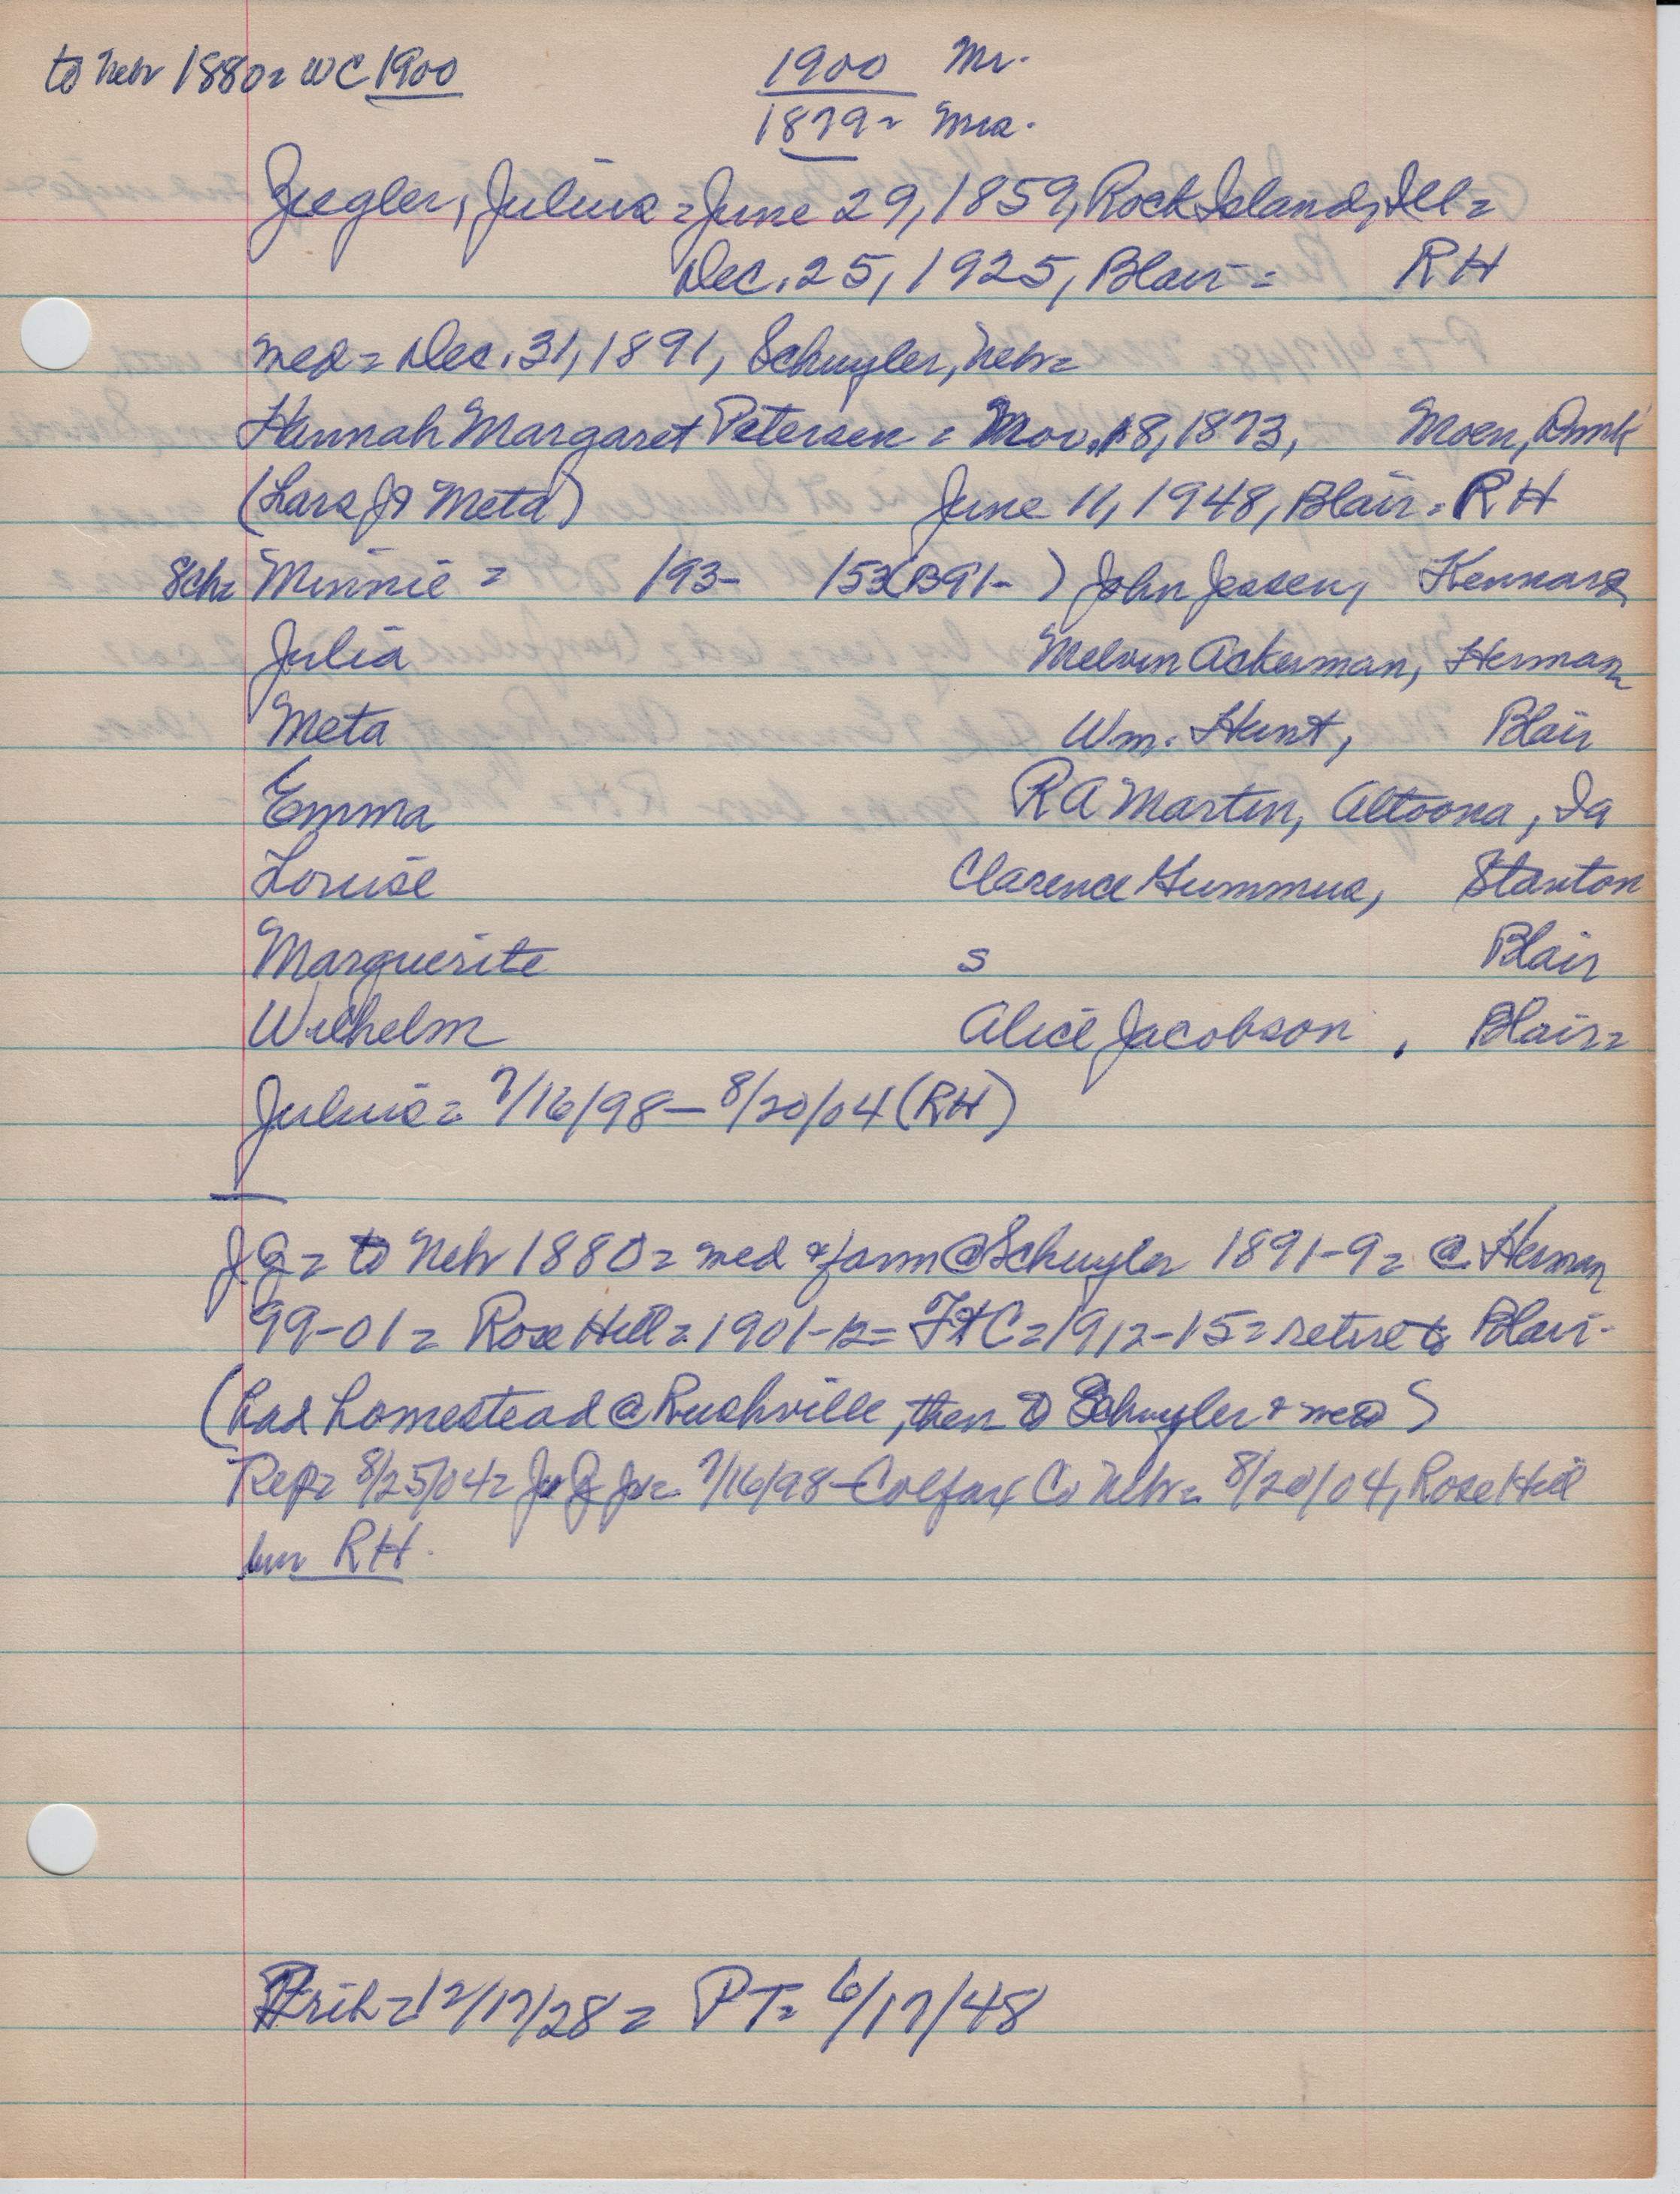 to Nebr 1880= WC 1900
1900 Mr.
1879= Mrs.
Ziegler, Julius = June 29, 1859, Rock Island, Ill =
Dec. 25, 1925, Blair = RH
med = Dec. 31, 1891, Schuyler, Nebr =
Hannah Margaret Petersen = Nov. 18, 1873, Moen, Dnmk
(Lars J & Meta) June 11, 1948, Blair = RH
8ch= Minnie = /93- /53 (B91- ) John Jessen, Kennard
Julia Melvin Ackerman, Herman
Meta Wm. Hunt, Blair
Emma RA Martin, Altoona, Ia
Louise Clarence Hummus, Stanton
Marguerite s Blair
Wilhelm Alice Jacobson, Blair=
Julius = 7/16/98 - 8/20/04 (RH)
JZ = to Nebr 1880 = med & farm @ Schuyler 1891-9 = @ Herman
99-01 = Rose Hill = 1901-12 = Ft C = 1912-15 = retire to Blair-
(had homestead @ Rushville, then to Schuyler & med)
Rep= 8/25/04 = JZ Jr = 7/16/98 - Colfax Co Nebr = 8/20/04, Rose Hill
bur RH.
12/17/28 = PT = 6/17/48